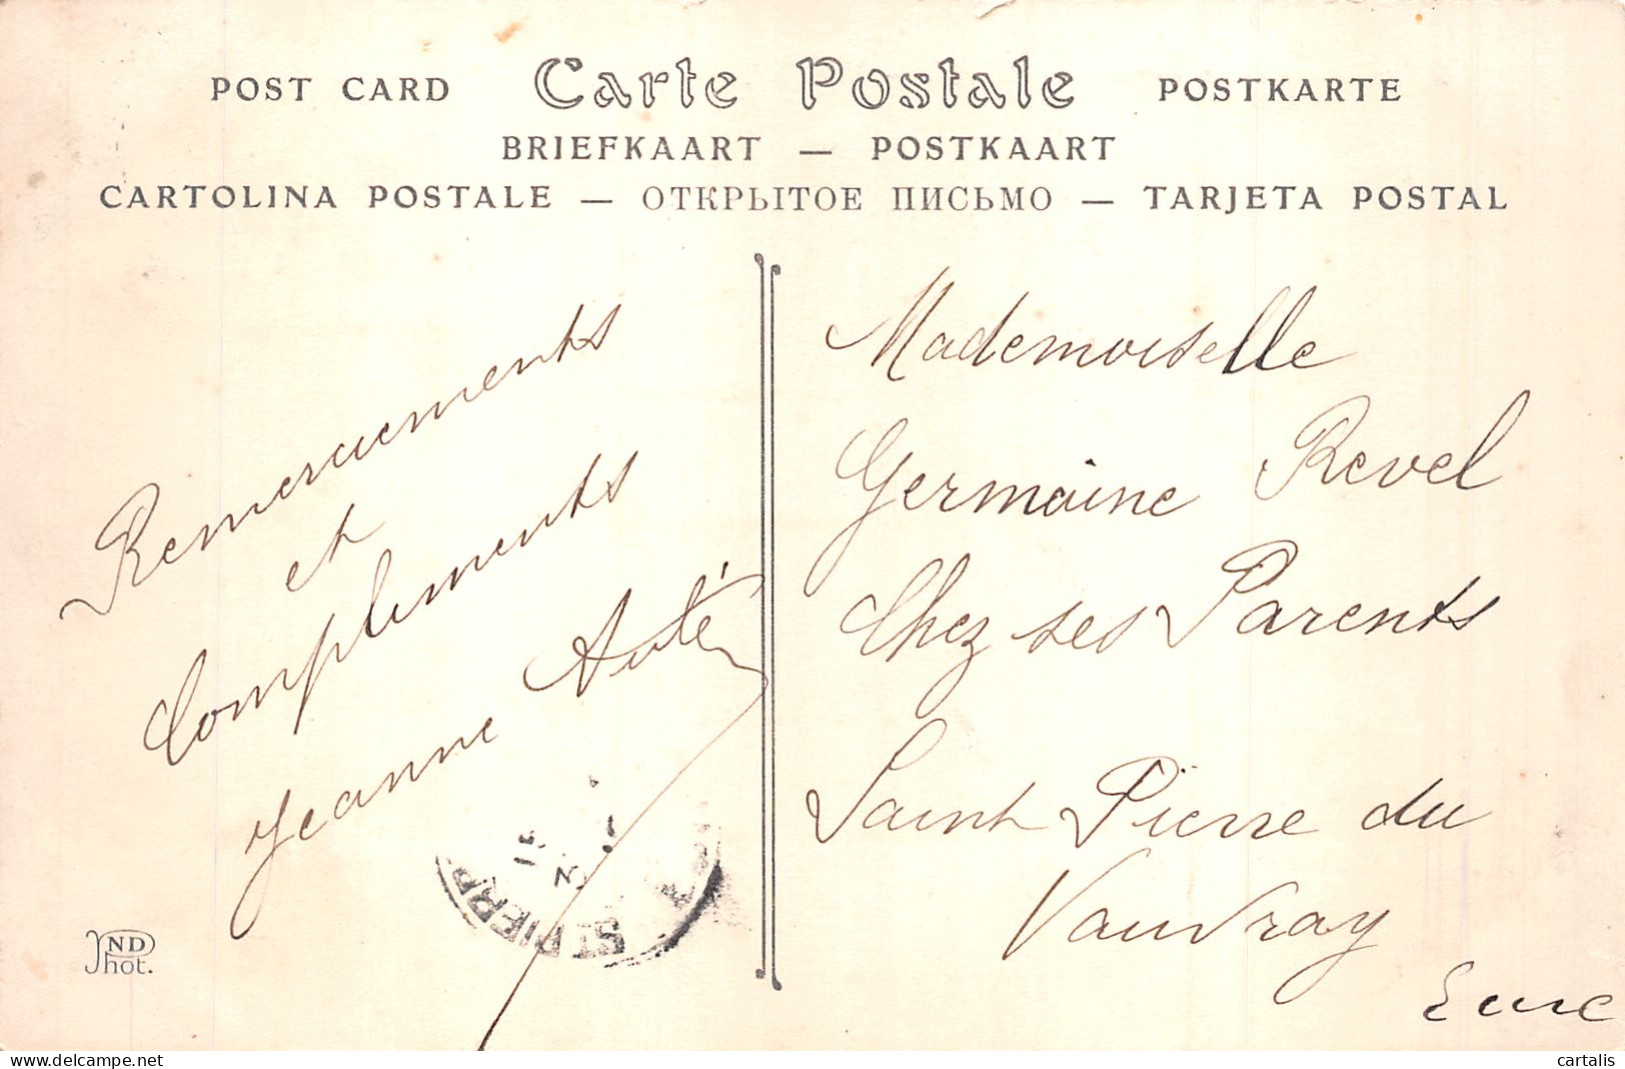 POST CARD Carte Postale POSTKARTE
BRIEFKAART — POSTKAART
CARTOLINA POSTALE — ОТКРЫТОЕ ПИСЬМО — TARJETA POSTAL
Remerciements
et
Compliments
Jeanne Auté
Mademoiselle
Germaine Revel
Chez ses Parents
Saint Pierre du
Vauvray
Eure
ST PIERR
ND
Phot.
delcampe.net
cartalis